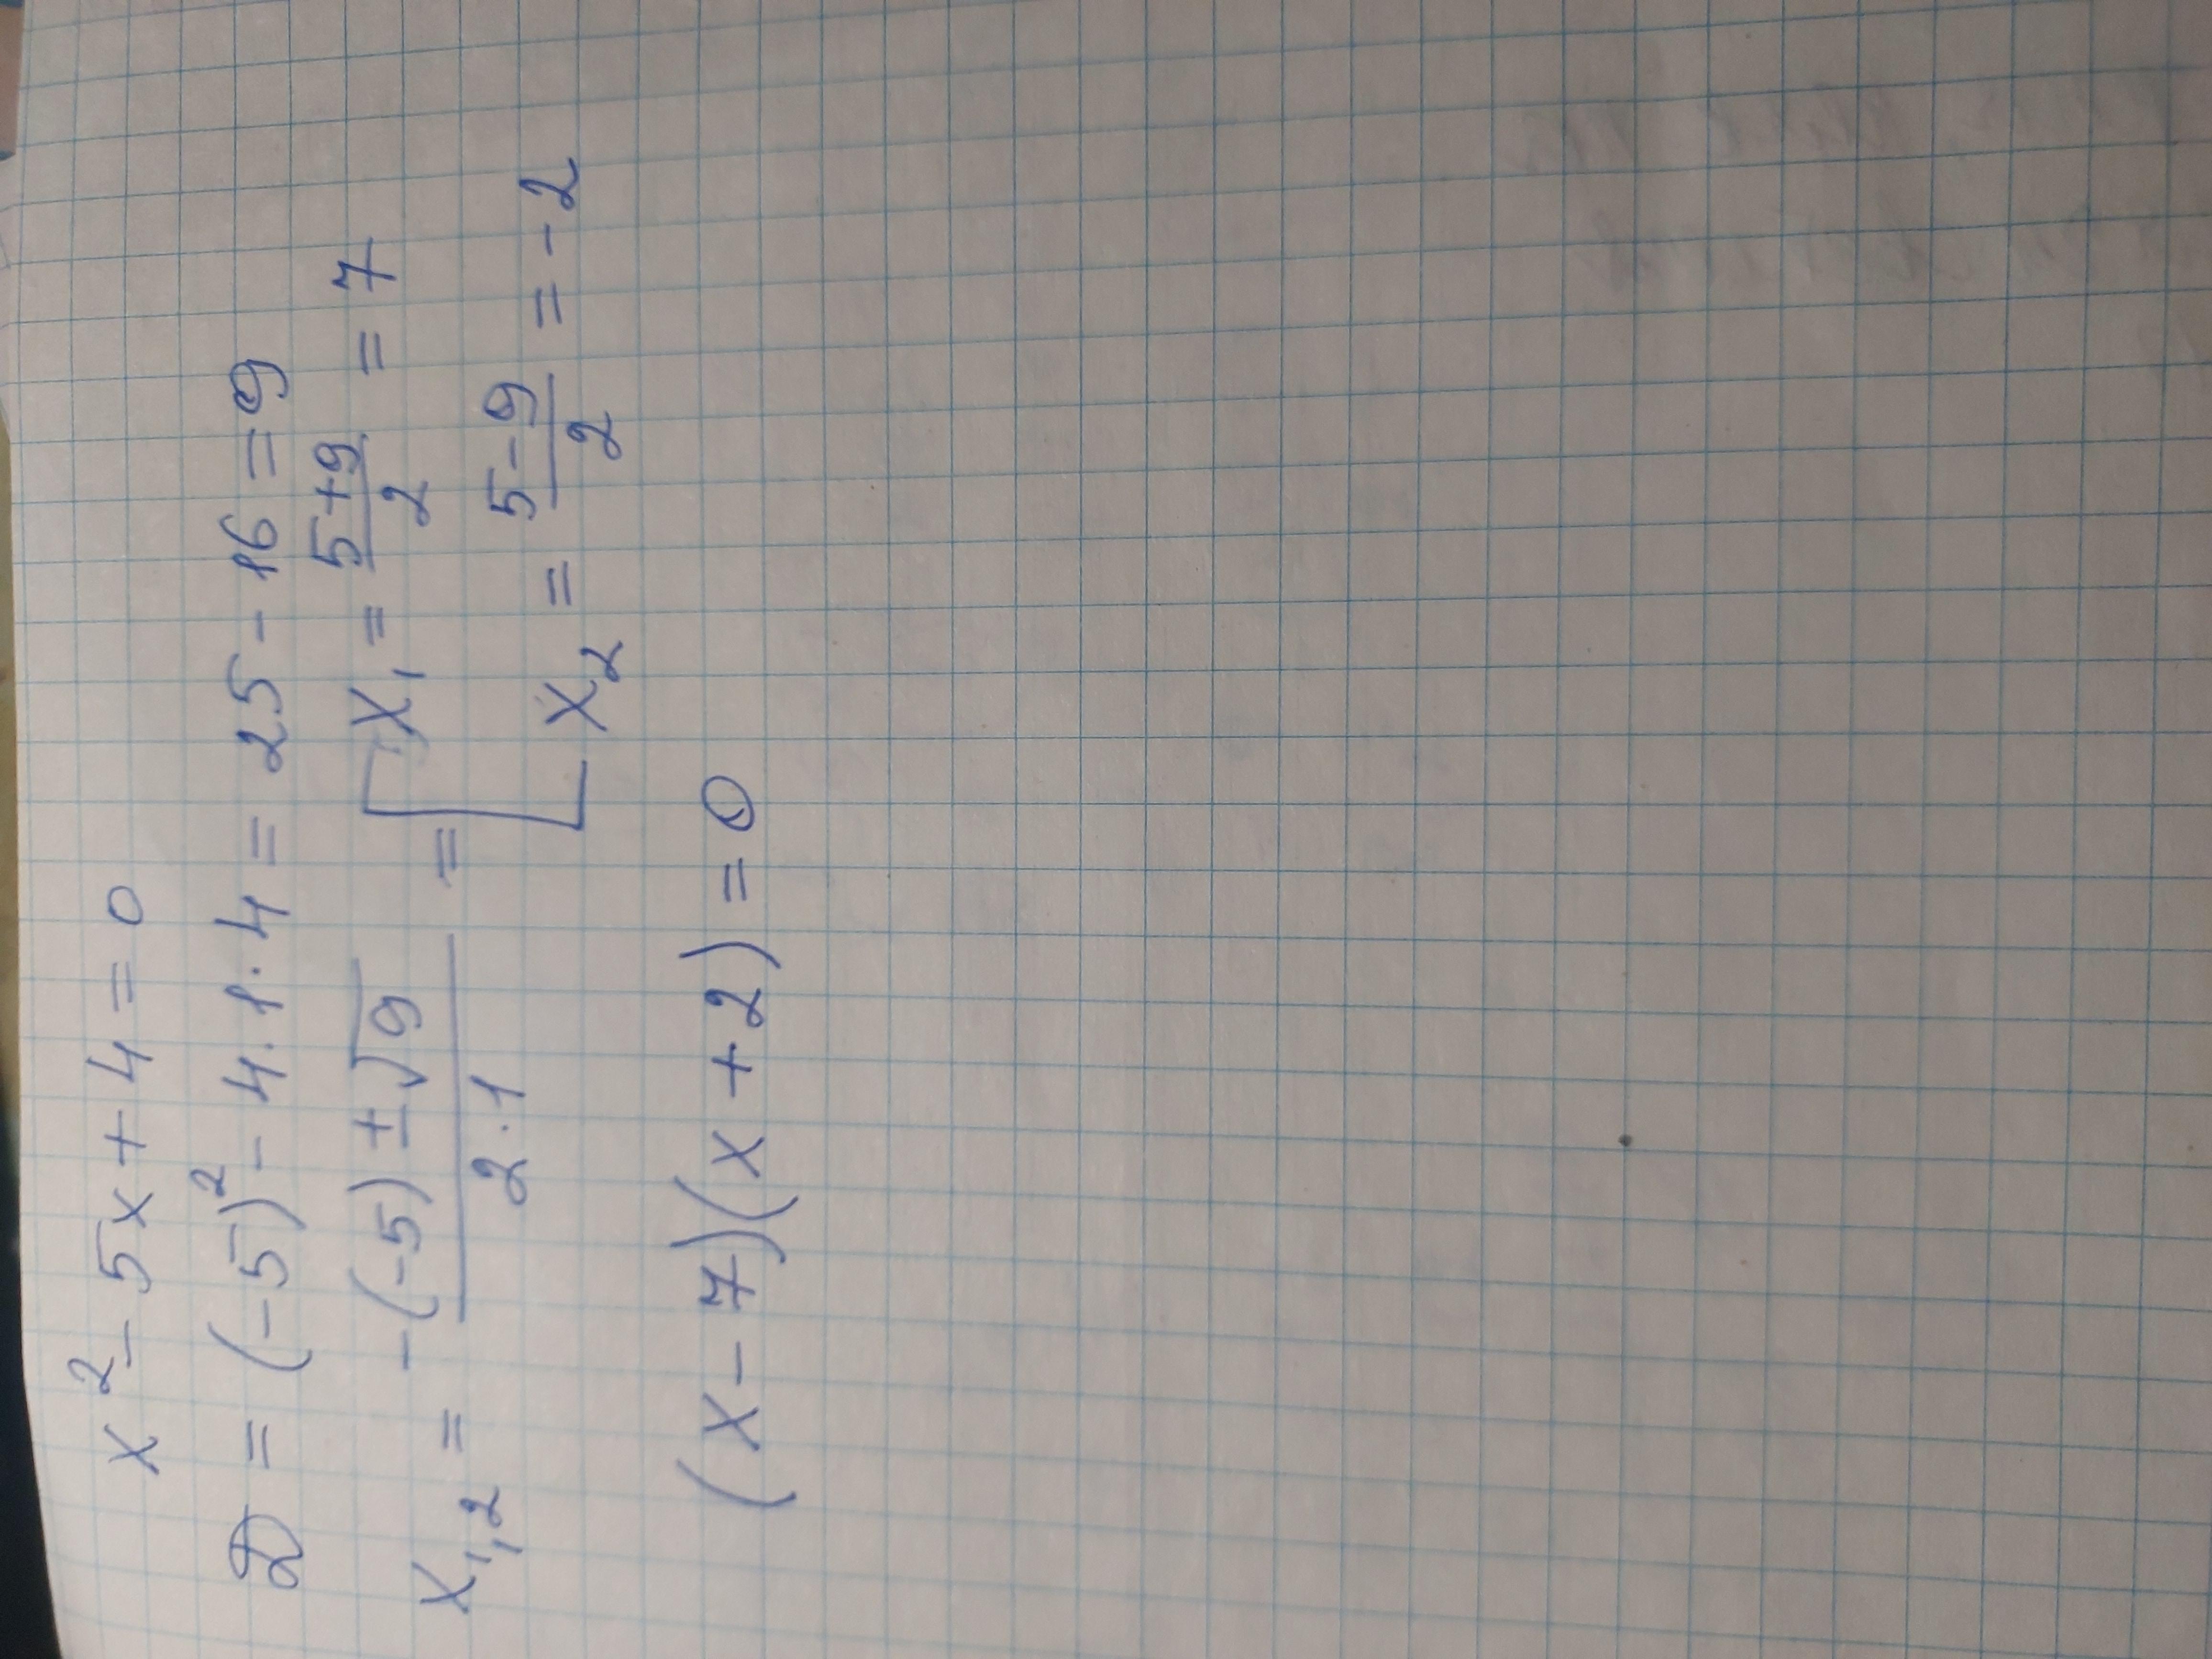 x² - 5x + 4 = 0
D = (-5)² - 4 · 1 · 4 = 25 - 16 = 9
x₁,₂ = -(-5) ± √9 / 2 · 1 = [ x₁ = 5+9 / 2 = 7
x₂ = 5-9 / 2 = -2
(x - 7)(x + 2) = 0